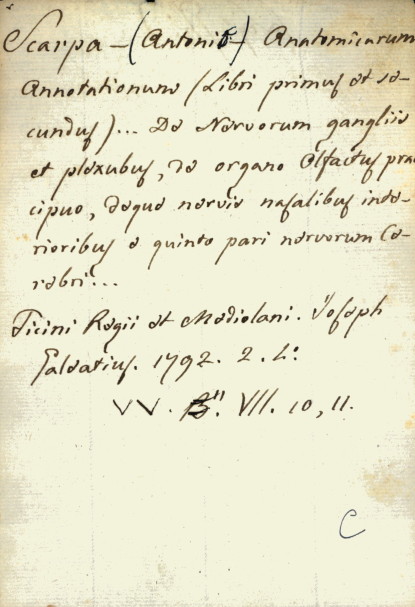 Scarpa - (Antonio) Anatomicarum
Annotationum (Libri primus et se-
cundus)... De Nervorum gangliis
et plexubus, de organo Olfactus prae
cipuo, deque nervis nasalibus inte-
rioribus e quinto pari nervorum Ce-
rebri...
Ticini Regii et Mediolani. Joseph
Galeatius. 1792. 2. L.
VV. B. VII. 10, 11.
C